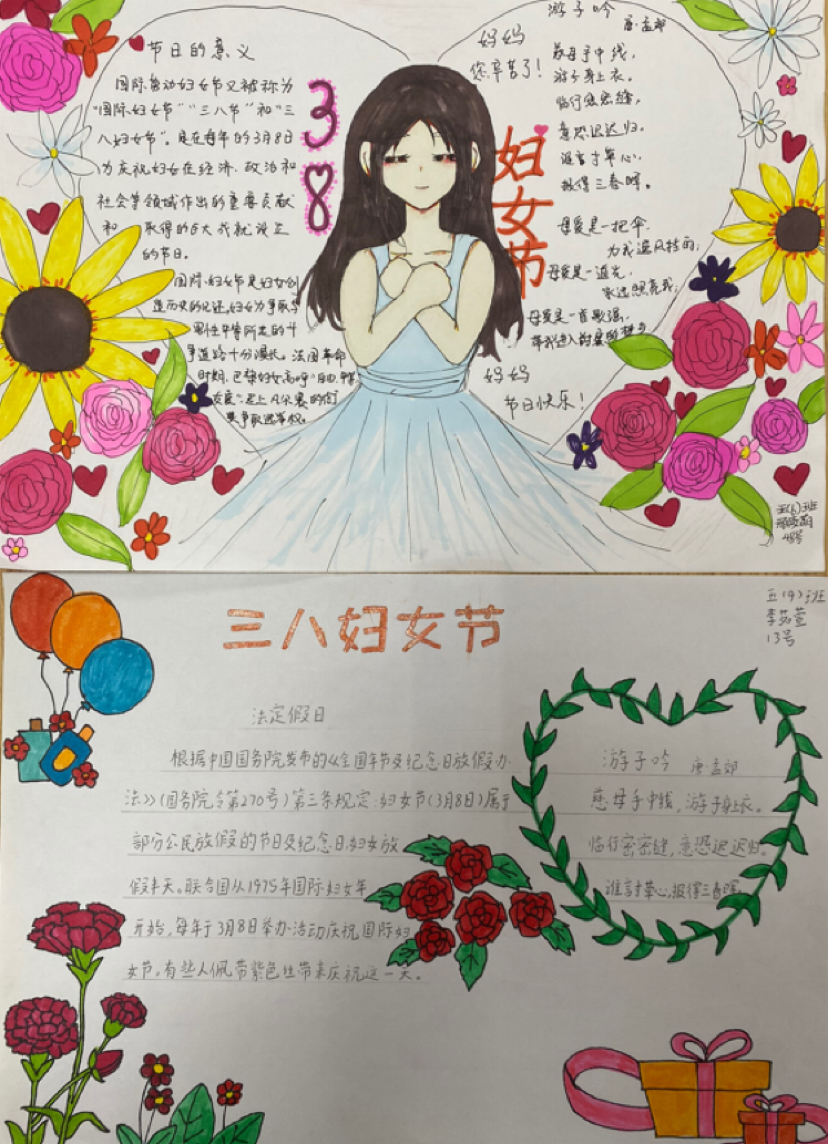 节日的意义
国际劳动妇女节又被称为
"国际妇女节""三八节"和"三
八妇女节"。是在每年的3月8日
为庆祝妇女在经济、政治和
社会等领域作出的重要贡献
和取得的巨大成就设立
的节日。
国际妇女节是妇女创
造历史的见证,妇女为争取与
男性平等所走的斗
争道路十分漫长。法国革命
时期,巴黎妇女高呼"自由、平等
友爱"走上凡尔赛的街
头争取选举权。
38
妇女节
妈妈
您辛苦了!
游子吟
唐·孟郊
慈母手中线,
游子身上衣。
临行密密缝,
意恐迟迟归。
谁言寸草心,
报得三春晖。
母爱是一把伞,
为我遮风挡雨;
母爱是一道光,
永远照亮我;
母爱是一首歌谣,
带我进入甜蜜的梦乡
妈妈
节日快乐!
五(6)班
48号
三八妇女节
五(4)班
李茹萱
13号
法定假日
根据中国国务院发布的《全国年节及纪念日放假办
法》(国务院令第270号)第三条规定:妇女节(3月8日)属于
部分公民放假的节日及纪念日,妇女放
假半天。联合国从1975年国际妇女年
开始,每年于3月8日举办活动庆祝国际妇
女节。有些人佩带紫色丝带来庆祝这一天。
游子吟 唐·孟郊
慈母手中线,游子身上衣。
临行密密缝,意恐迟迟归。
谁言寸草心,报得三春晖。